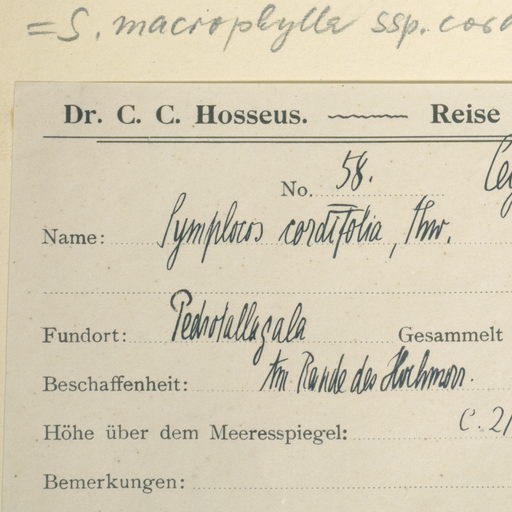 = S. macrophylla ssp. cord
Dr. C. C. Hosseus. Reise
No. 58. Cey
Name: Symplocos cordifolia, Thw.
Fundort: Pedrotallagala Gesammelt
Beschaffenheit: Am Rande des Hochmoor.
Höhe über dem Meeresspiegel: C. 21
Bemerkungen: